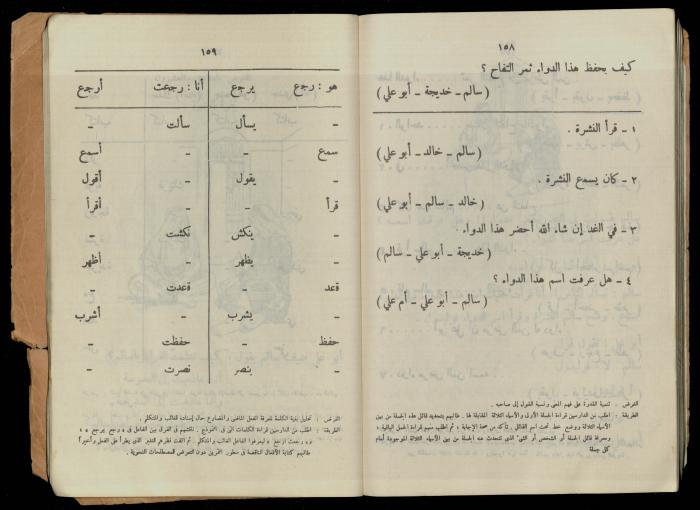 ١٥٨
كيف يحفظ هذا الدواء ثمر التفاح ؟
( سالم ـ خديجة ـ أبو علي )
١ ـ قرأ النشرة .
( سالم ـ خالد ـ أبو علي )
٢ ـ كان يسمع النشرة .
( خالد ـ سالم ـ أبو علي )
٣ ـ في الغد إن شاء الله أحضر هذا الدواء .
( خديجة ـ أبو علي ـ سالم )
٤ ـ هل عرفت اسم هذا الدواء ؟
( سالم ـ أبو علي ـ أم علي )
الغرض : تنمية القدرة على فهم المعنى ونسبة القول إلى صاحبه .
الطريقة : اطلب من الدارسين قراءة الجملة الأولى والأسماء الثلاثة المقابلة لها . طالبهم بتحديد قائل هذه الجملة من بين
الأسماء الثلاثة ووضع خط تحت اسم القائل . تأكد من صحة الإجابة ؛ ثم اطلب منهم قراءة الجمل الباقية ،
ومعرفة قائل أو الشخص أو الشيء الذي تتحدث عنه الجملة من بين الأسماء الثلاثة الموجودة أمام
كل جملة
١٥٩
هو : رجع يرجع أنا : رجعت أرجع
ـ يسأل سألت ـ
سمع ـ ـ أسمع
ـ يقول ـ أقول
قرأ ـ ـ أقرأ
ـ ينكش نكشت ـ
ـ يظهر ـ أظهر
قعد ـ قعدت ـ
ـ يشرب ـ أشرب
حفظ ـ حفظت ـ
ـ ينصر نصرت ـ
الغرض : تحليل بنية الكلمة لمعرفة الفعل الماضي والمضارع حال إسناده للغائب والمتكلم .
الطريقة : اطلب من الدارسين قراءة الكلمات التي في النموذج . ناقشهم في الفرق بين الفعل في « رجع يرجع »
و « رجعت أرجع » ليعرفوا الفعل الغائب والمتكلم . ثم ألفت نظرهم للتغير الذي يطرأ على الفعل وأخيراً
طالبهم كتابة الأفعال الناقصة في سطور التمرين دون التعرض للمصطلحات النحوية .